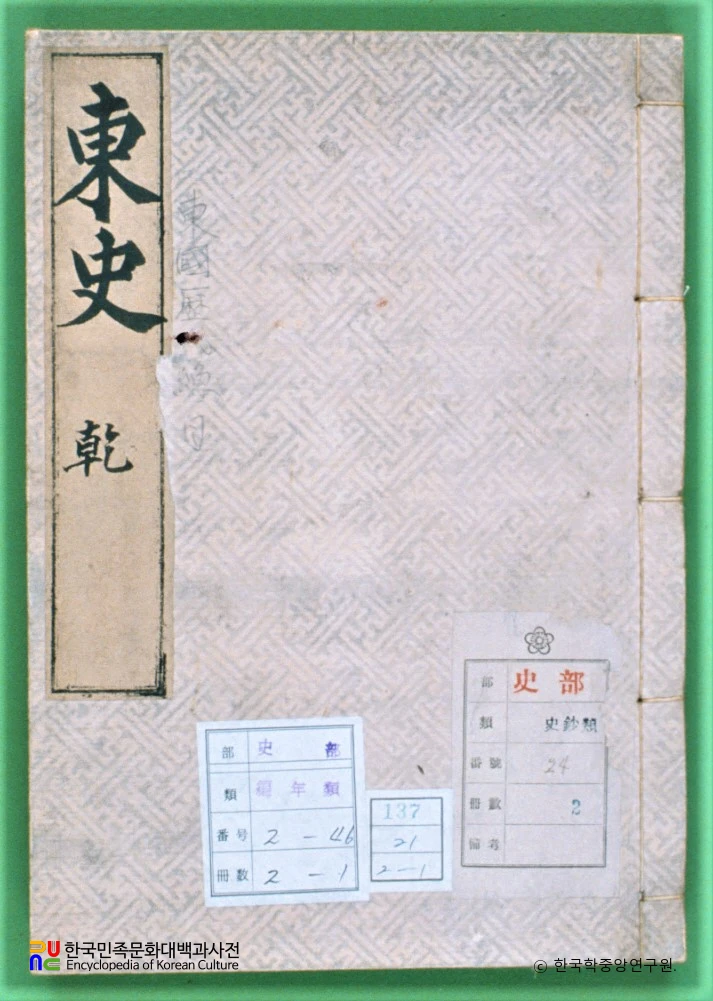 東史
乾
東國歷代總目
部 史部
類 史鈔類
番號 24
冊數 2
備考
部 史部
類 編年類
番号 2-46
冊数 2-1
137
21
2-1
한국민족문화대백과사전
Encyclopedia of Korean Culture
© 한국학중앙연구원.